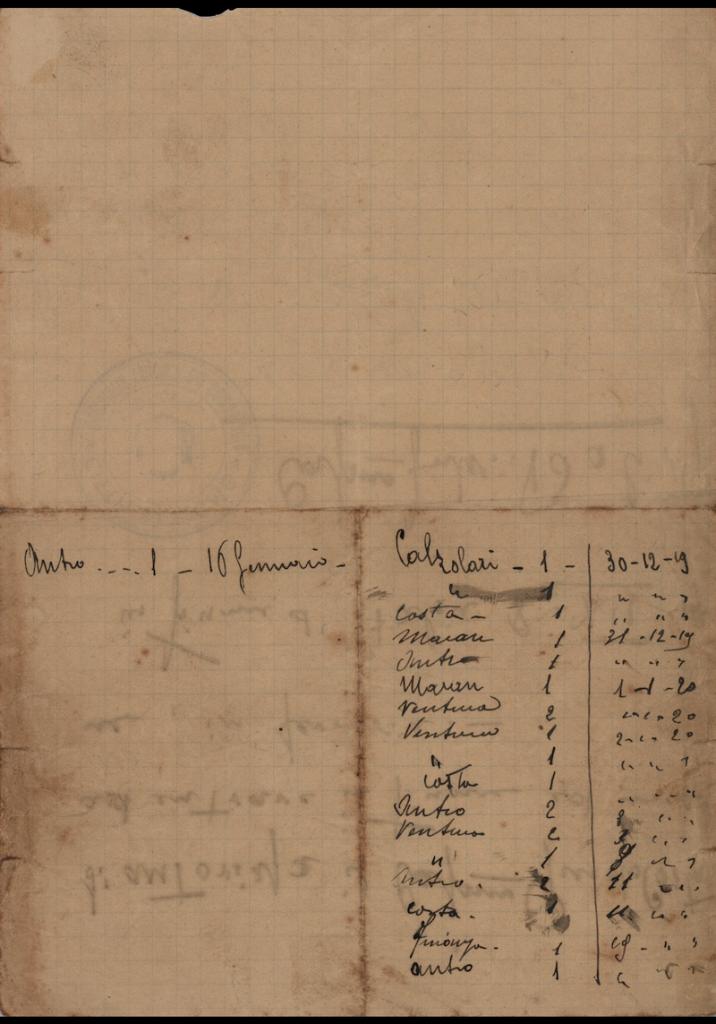 Antro . . . . 1 - 16 Gennaio -
Calzolari - 1 - 30-12-19
" 1 " " "
Costa - 1 " " "
Maran 1 31-12-19
Antro 1 " " "
Maran 1 1-1-20
Ventura 2 " " 20
Ventura 1 2 " " 20
" 1 " " "
Costa 1 " " "
Antro 2 " "
Ventura 2 " "
" 1 " "
Antro . 2 11 " "
Costa . 11 " "
1 19 - " "
Antro 1 " " "